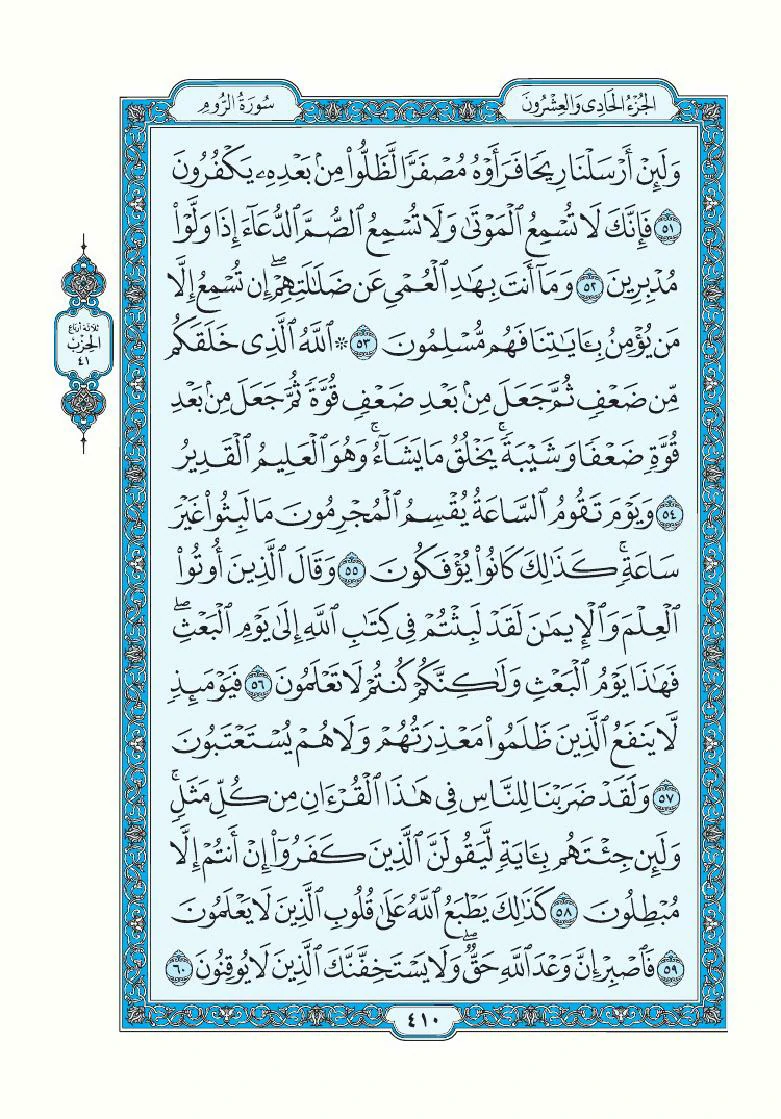 الجُزْءُ الحَادِى وَالعِشْرُونَ
سُورَةُ الرُّومِ
وَلَئِنْ أَرْسَلْنَا رِيحًا فَرَأَوْهُ مُصْفَرًّا لَّظَلُّوا۟ مِنۢ بَعْدِهِۦ يَكْفُرُونَ
٥١ فَإِنَّكَ لَا تُسْمِعُ ٱلْمَوْتَىٰ وَلَا تُسْمِعُ ٱلصُّمَّ ٱلدُّعَآءَ إِذَا وَلَّوْا۟
مُدْبِرِينَ ٥٢ وَمَآ أَنتَ بِهَٰدِ ٱلْعُمْىِ عَن ضَلَٰلَتِهِمْ ۖ إِن تُسْمِعُ إِلَّا
مَن يُؤْمِنُ بِـَٔايَٰتِنَا فَهُم مُّسْلِمُونَ ٥٣ ۞ ٱللَّهُ ٱلَّذِى خَلَقَكُم
مِّن ضَعْفٍ ثُمَّ جَعَلَ مِنۢ بَعْدِ ضَعْفٍ قُوَّةً ثُمَّ جَعَلَ مِنۢ بَعْدِ
قُوَّةٍ ضَعْفًا وَشَيْبَةً ۚ يَخْلُقُ مَا يَشَآءُ ۖ وَهُوَ ٱلْعَلِيمُ ٱلْقَدِيرُ
٥٤ وَيَوْمَ تَقُومُ ٱلسَّاعَةُ يُقْسِمُ ٱلْمُجْرِمُونَ مَا لَبِثُوا۟ غَيْرَ
سَاعَةٍ ۚ كَذَٰلِكَ كَانُوا۟ يُؤْفَكُونَ ٥٥ وَقَالَ ٱلَّذِينَ أُوتُوا۟
ٱلْعِلْمَ وَٱلْإِيمَٰنَ لَقَدْ لَبِثْتُمْ فِى كِتَٰبِ ٱللَّهِ إِلَىٰ يَوْمِ ٱلْبَعْثِ ۖ
فَهَٰذَا يَوْمُ ٱلْبَعْثِ وَلَٰكِنَّكُمْ كُنتُمْ لَا تَعْلَمُونَ ٥٦ فَيَوْمَئِذٍ
لَّا يَنفَعُ ٱلَّذِينَ ظَلَمُوا۟ مَعْذِرَتُهُمْ وَلَا هُمْ يُسْتَعْتَبُونَ
٥٧ وَلَقَدْ ضَرَبْنَا لِلنَّاسِ فِى هَٰذَا ٱلْقُرْءَانِ مِن كُلِّ مَثَلٍ ۚ
وَلَئِن جِئْتَهُم بِـَٔايَةٍ لَّيَقُولَنَّ ٱلَّذِينَ كَفَرُوٓا۟ إِنْ أَنتُمْ إِلَّا
مُبْطِلُونَ ٥٨ كَذَٰلِكَ يَطْبَعُ ٱللَّهُ عَلَىٰ قُلُوبِ ٱلَّذِينَ لَا يَعْلَمُونَ
٥٩ فَٱصْبِرْ إِنَّ وَعْدَ ٱللَّهِ حَقٌّ ۖ وَلَا يَسْتَخِفَّنَّكَ ٱلَّذِينَ لَا يُوقِنُونَ ٦٠
ثلاثة أرباع
الحِزْب
٤١
٤١٠